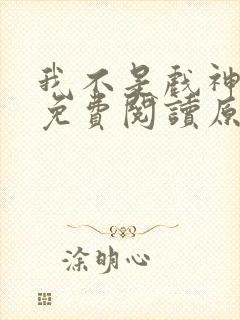 我不是戏神
免費閱讀原
涂明心